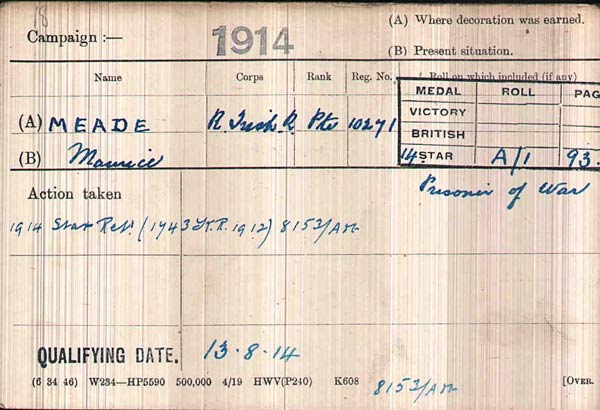 18
Campaign :— 1914 (A) Where decoration was earned.
(B) Present situation.
Name Corps Rank Reg. No. Roll on which included (if any)
MEDAL ROLL PAG
VICTORY
BRITISH
14 STAR A/1 93.
(A) MEADE R. Irish R Pte 10271
(B) Maurice
Prisoner of War
Action taken
1914 Star Ret. (1743 K.R. 1912) 8153/AM
QUALIFYING DATE. 13.8.14
(6 34 46) W234—HP5590 500,000 4/19 HWV(P240) K608 [OVER.
8153/AM